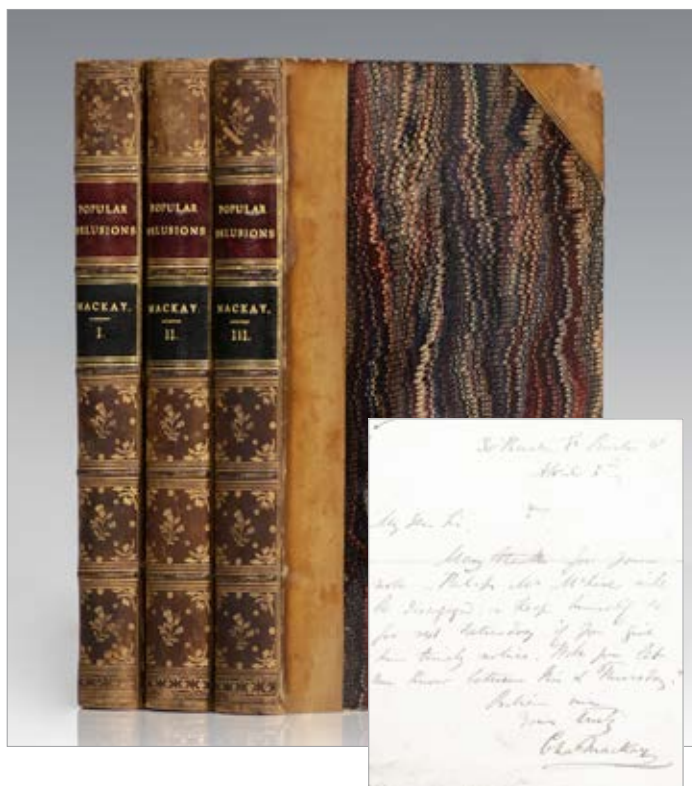 POPULAR
DELUSIONS
MACKAY.
I.
POPULAR
DELUSIONS
MACKAY.
II.
POPULAR
DELUSIONS
MACKAY.
III.
My Dear Sir,
Many thanks for your
note. Perhaps Mr
be disengaged & keep himself
for next Saturday if you give
him timely notice. Will you let
me know between this & Thursday?
Believe me
Yours truly
Chas Mackay